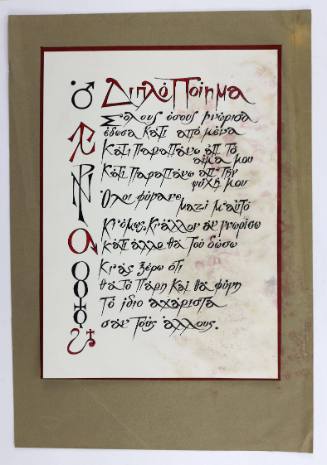 Διπλό Ποίημα
Σ' όλους όσους γνώρισα
έδωσα κάτι από μένα
Κάτι παραπάνω απ' το
αίμα μου
Κάτι παραπάνω απ' την
ψυχή μου
Όλοι φύγανε
μαζί μ' αυτό
Κι όμως κι άλλον αν γνωρίσω
κάτι άλλο θα του δώσω
Κι ας ξέρω ότι
θα το πάρη και θα φύγη
το ίδιο αχάριστα
σαν τους άλλους.